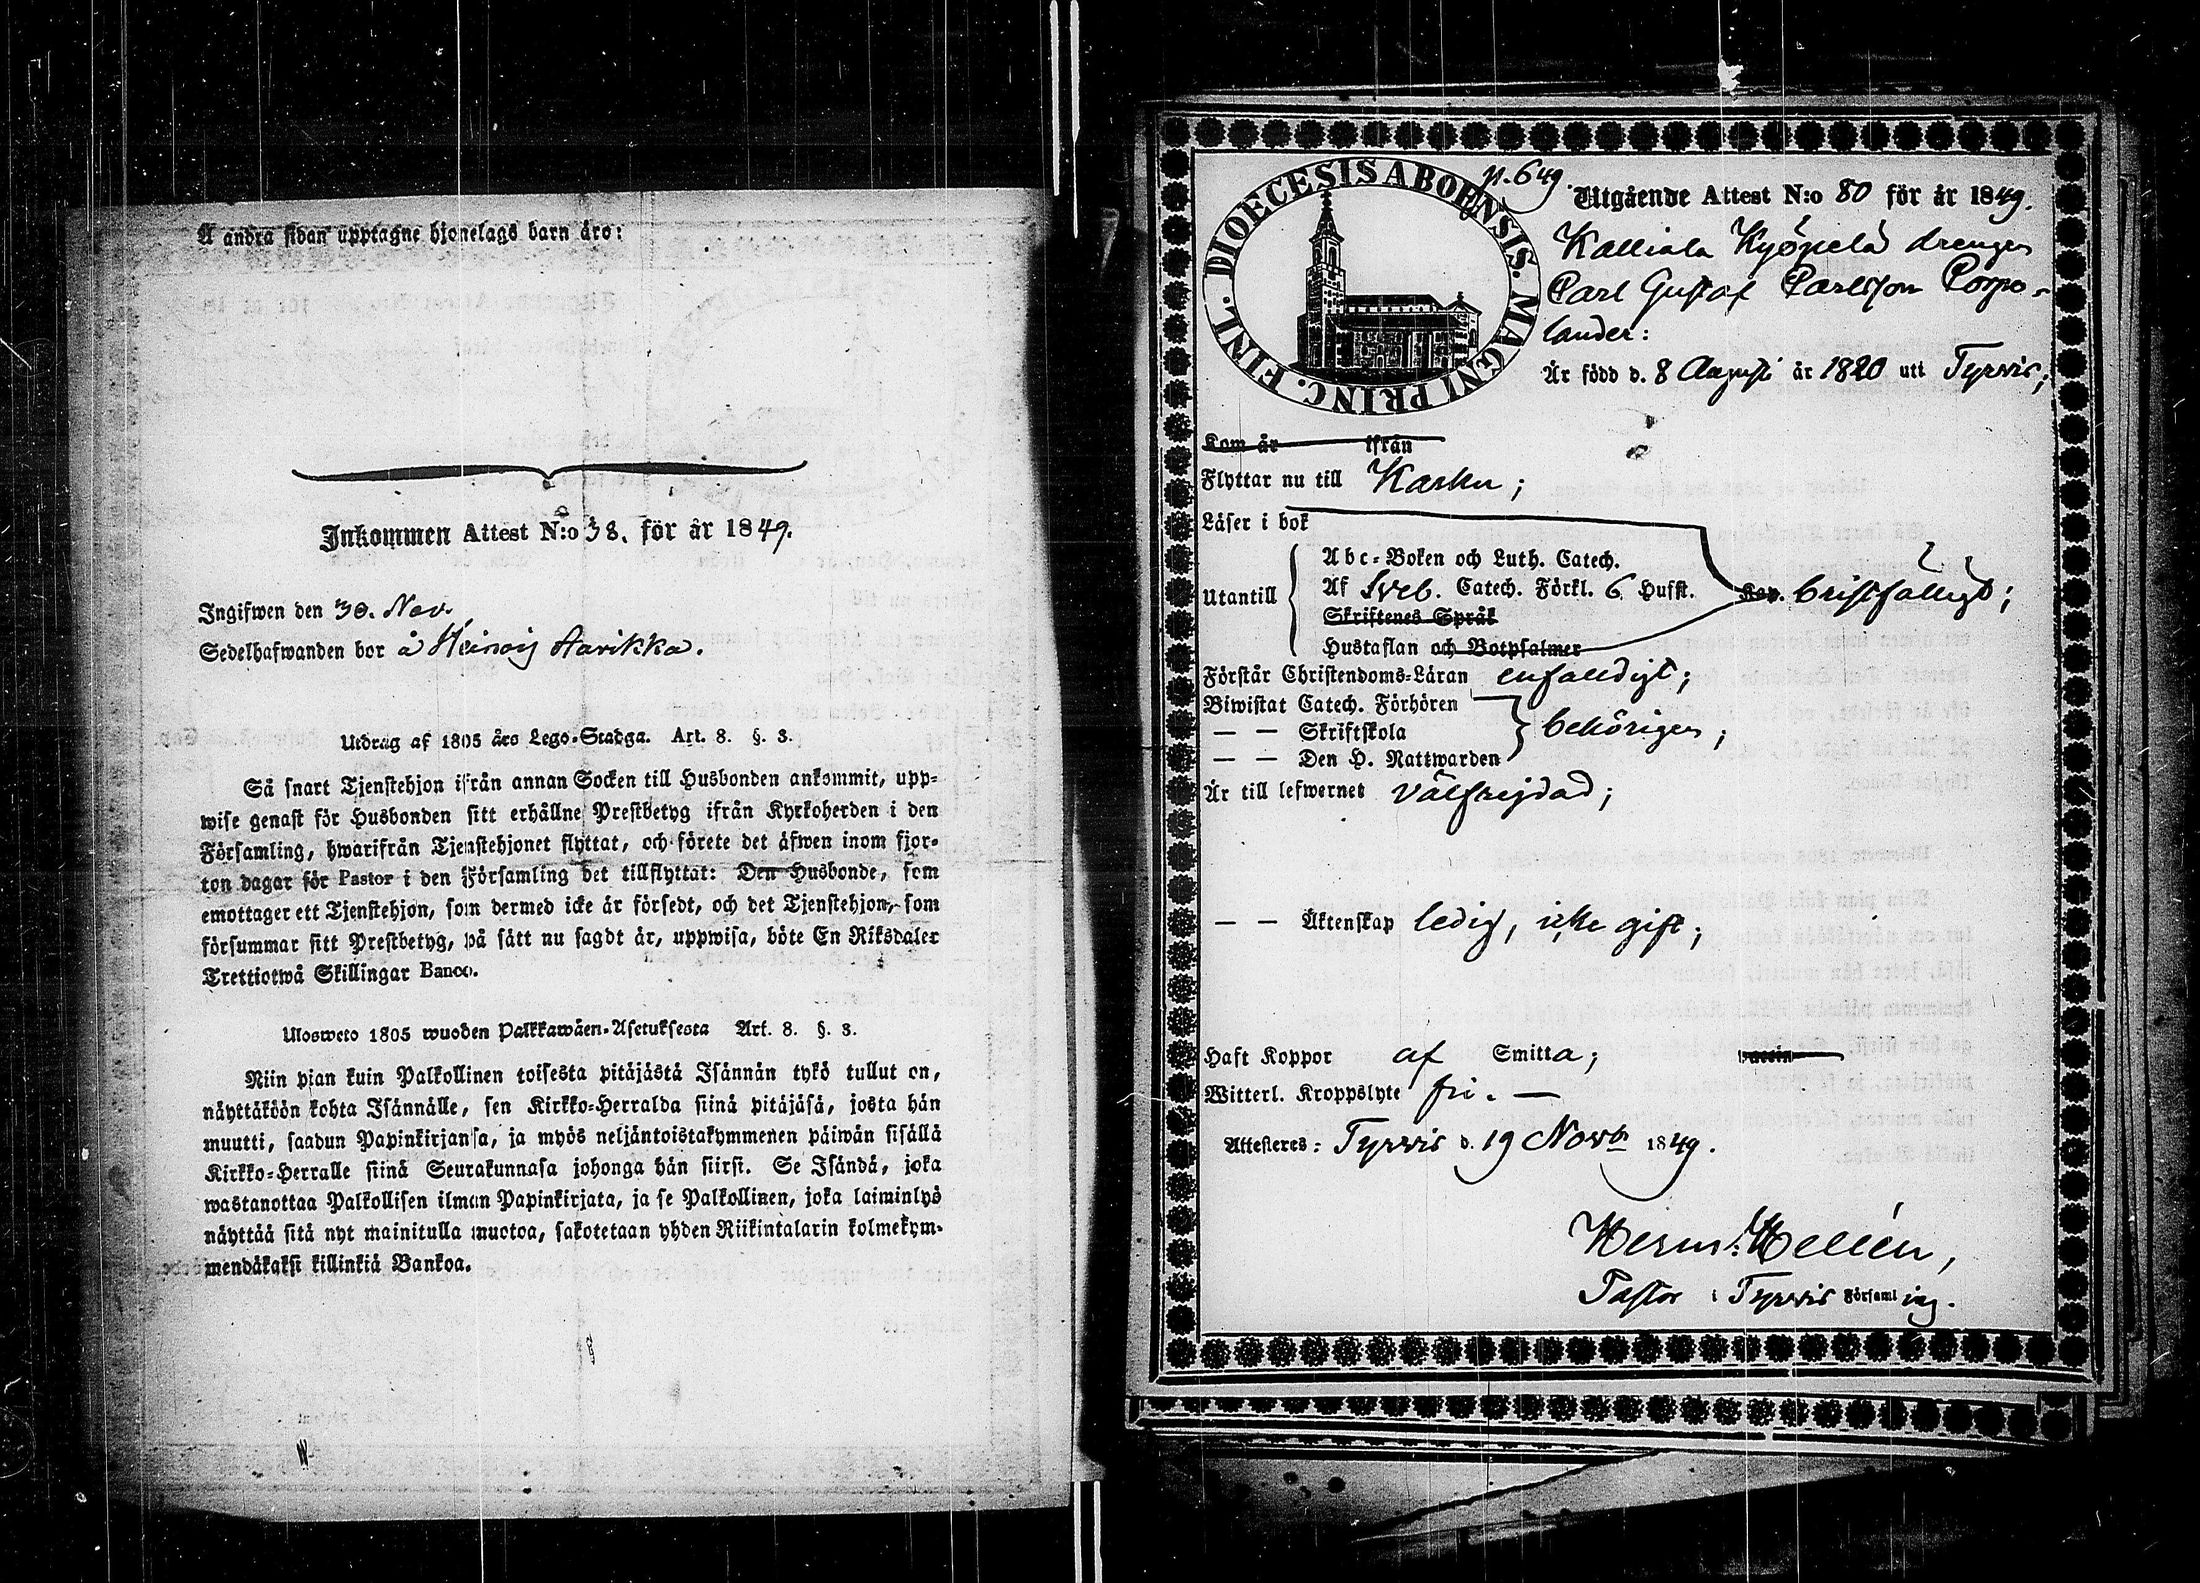 Å andra sidan upptagne hjonelags barn äro:
Inkommen Attest N:o 38. för år 1849.
Ingifwen den 30. Nov.
Sedelhafwanden bor å Heinoij Aarikka.
Utdrag af 1805 års Lego-Stadga. Art. 8. §. 3.
Så snart Tjenstehjon ifrån annan Socken till Husbonden ankommit, upp-
wise genast för Husbonden sitt erhållne Prestbetyg ifrån Kyrkoherden i den
Församling, hwarifrån Tjenstehjonet flyttat, och förete det äfwen inom fjor-
ton dagar för Pastor i den Församling det tillflyttat: Den Husbonde, som
emottager ett Tjenstehjon, som dermed icke är försedt, och det Tjenstehjon, som
försummar sitt Prestbetyg, på sätt nu sagdt är, uppwisa, böte En Riksdaler
Trettiotwå Skillingar Banco.
Ulosweto 1805 wuoden Palkkawäen-Asetuksesta Art. 8. §. 3.
Niin pian kuin Palkollinen toisesta pitäjästä Isännän tykö tullut on,
näyttäköön kohta Isännälle, sen Kirkko-Herralda siinä pitäjäsä, josta hän
muutti, saadun Papinkirjansa, ja myös neljäntoistakymmenen päiwän sisällä
Kirkko-Herralle siinä Seurakunnasa johonga hän siirsi. Se Isändä, joka
wastanottaa Palkollisen ilman Papinkirjata, ja se Palkollinen, joka laiminlyö
näyttää sitä nyt mainitulla muotoa, sakotetaan yhden Riikintalarin kolmekym-
mendäkaksi killinkiä Bankoa.
p. 649.
DIOECESIS ABOENSIS. MAGNI PRINC. FINL.
Utgående Attest N:o 80 för år 1849.
Kalliala Kyöpelä drengen
Carl Gustaf Carlsson Corpo-
lander:
Är född d. 8 Augusti år 1820 uti Tyrvis;
Kom år ifrån
Flyttar nu till Karku;
Läser i bok
Abc-Boken och Luth. Catech.
Utantill Af Sveb. Catech. Förkl. 6 Hufst. Kap. bristfälligt;
Skriftenes Språk
Hustaflan och Botpsalmer
Förstår Christendoms-Läran enfaldigt;
Biwistat Catech. Förhören
— — Skriftskola behörigen;
— — Den H. Nattwarden
Är till lefwernet välfrejdad;
— — Äktenskap ledig, icke gift;
Haft Koppor af Smitta; vaccin
Witterl. Kroppslyte fri. —
Attesteres: Tyrvis d. 19 Novbr 1849.
Herm: Hellén,
Pastor i Tyrvis Församling.